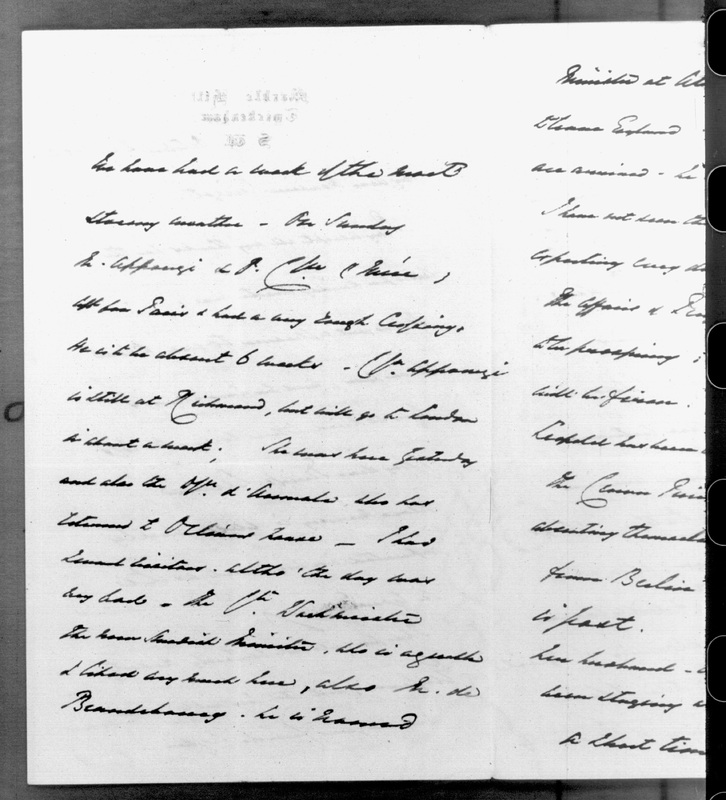 Marble Hill
Twickenham
S W
We have had a week of the most
stormy weather - On Sunday
M. Apponyi & P.
left for Paris & had a very rough Crossing.
He is to be absent 6 weeks - Css. Apponyi
is still at Richmond, but will go to London
in about a week. She was here yesterday
and also the Dss. d'Aumale who has
returned to Orleans house - I had
several visitors, altho' the day was
very bad - The Ct. Wachtmeister
The new Swedish Minister, who is agreeable
& liked very much here, also M. de
Brandebourg. he is named
Minister at
Thence England
are
I have not seen the
expecting every
The affairs of
the prospering
will be firm.
Leopold has been
the Crown
absenting themselves
from Berlin
is past.
her husband -
been staying
a short time